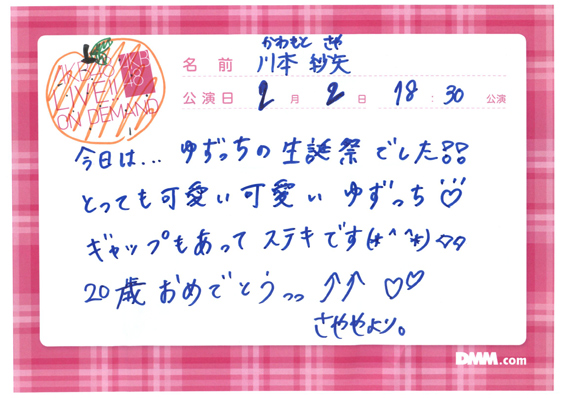 AKB48
LIVE!!
ON DEMAND
AKB
48
かわもと さや
名前 川本 紗矢
公演日 2月 2日 18:30 公演
今日は... ゆずっちの生誕祭でした
とっても可愛い可愛い ゆずっち♡
ギャップもあって ステキです(*^^*)
20歳おめでとうっっ ↑↑ ♡♡
さややより。
DMM.com